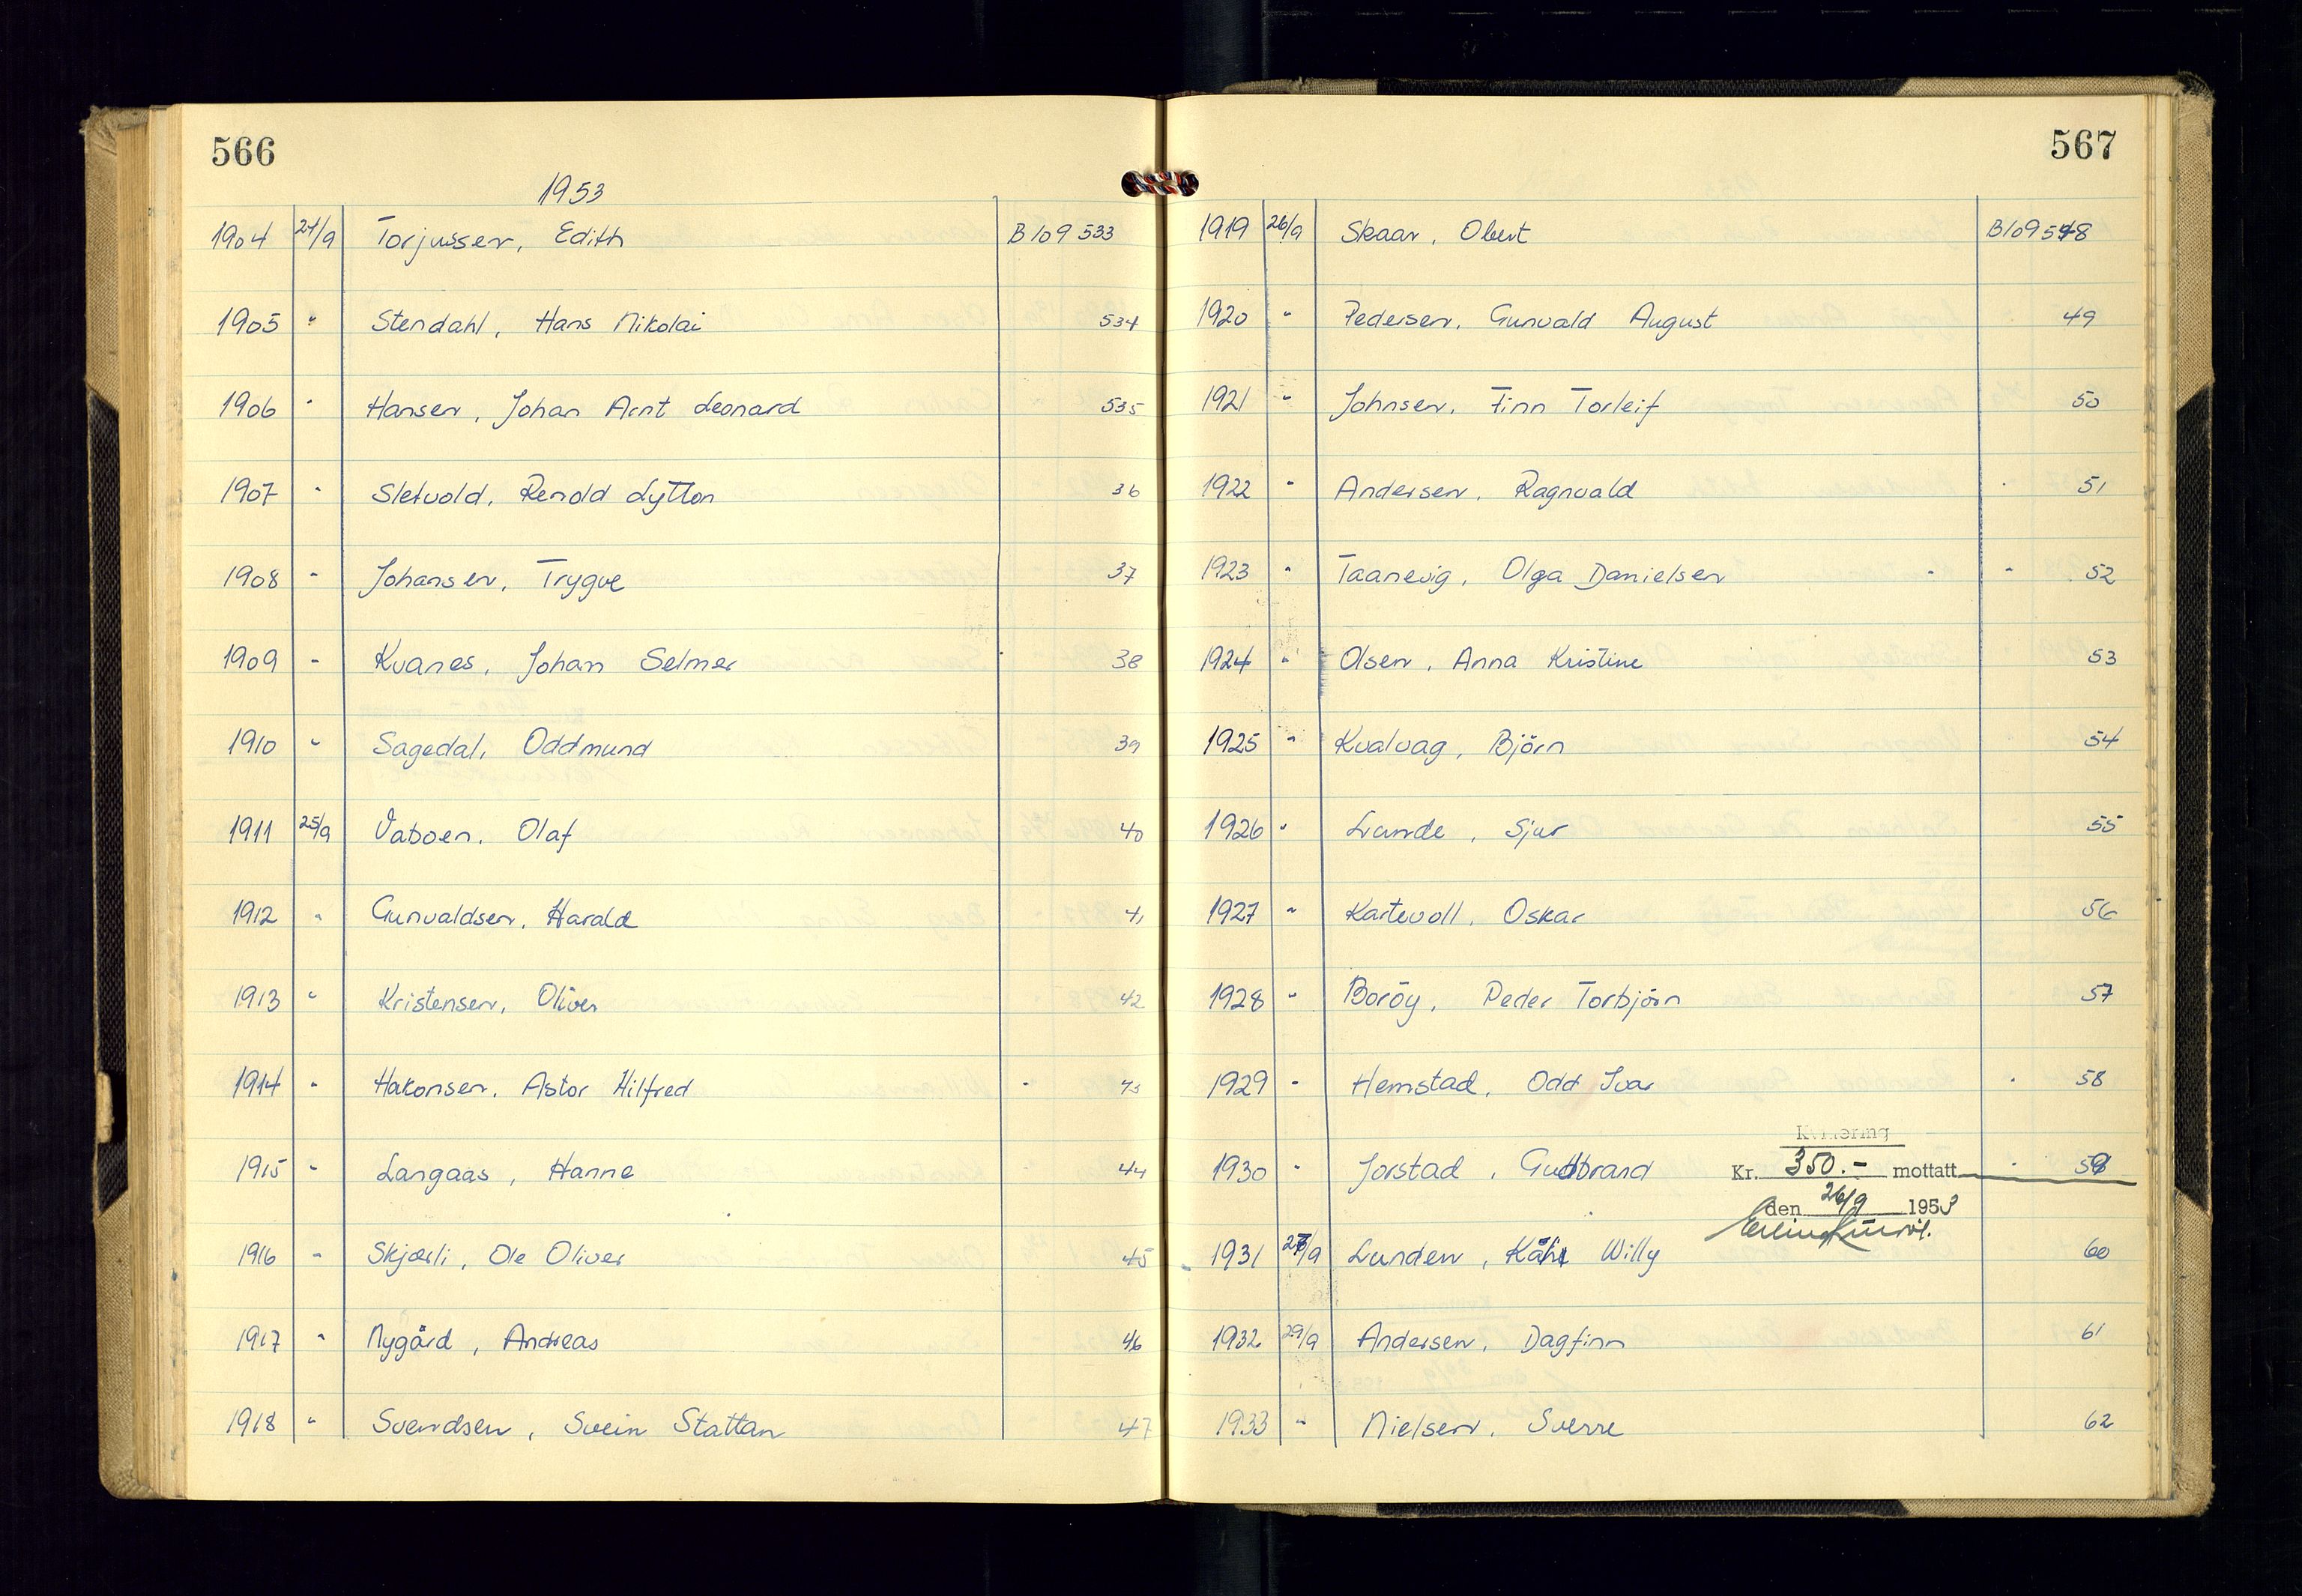 566
1953
1904 24/9 Torjussen, Edith B 109 533
1905 " Stendahl, Hans Nikolai 534
1906 " Hansen, Johan Arnt Leonard 535
1907 " Sletvold, Renold Lytton 36
1908 " Johansen, Trygve 37
1909 " Kvanes, Johan Selmer 38
1910 " Sagedal, Oddmund 39
1911 25/9 Vaboen, Olaf 40
1912 " Gunvaldsen, Harald 41
1913 " Kristensen, Oliver 42
1914 " Hakonsen, Astor Hilfred 43
1915 " Langaas, Hanne 44
1916 " Skjærli, Ole Oliver 45
1917 " Nygård, Andreas 46
1918 " Svendsen, Svein Stattan 47
567
1919 26/9 Skaar, Obert B 109 548
1920 " Pedersen, Gunvald August 49
1921 " Johnsen, Finn Torleif 50
1922 " Andersen, Ragnvald 51
1923 " Taanevig, Olga Danielsen 52
1924 " Olsen, Anna Kristine 53
1925 " Kvalvag, Björn 54
1926 " Lunde, Sjur 55
1927 " Kartevoll, Oskar 56
1928 " Boröy, Peder Torbjörn 57
1929 " Hemstad, Odd Ivar 58
Kvittering
1930 " Jorstad, Gudbrand Kr. 350.- mottatt 59
den 26/9 1953
1931 28/9 Lunden, Willy 60
1932 29/9 Andersen, Dagfinn 61
1933 " Nielsen, Sverre 62